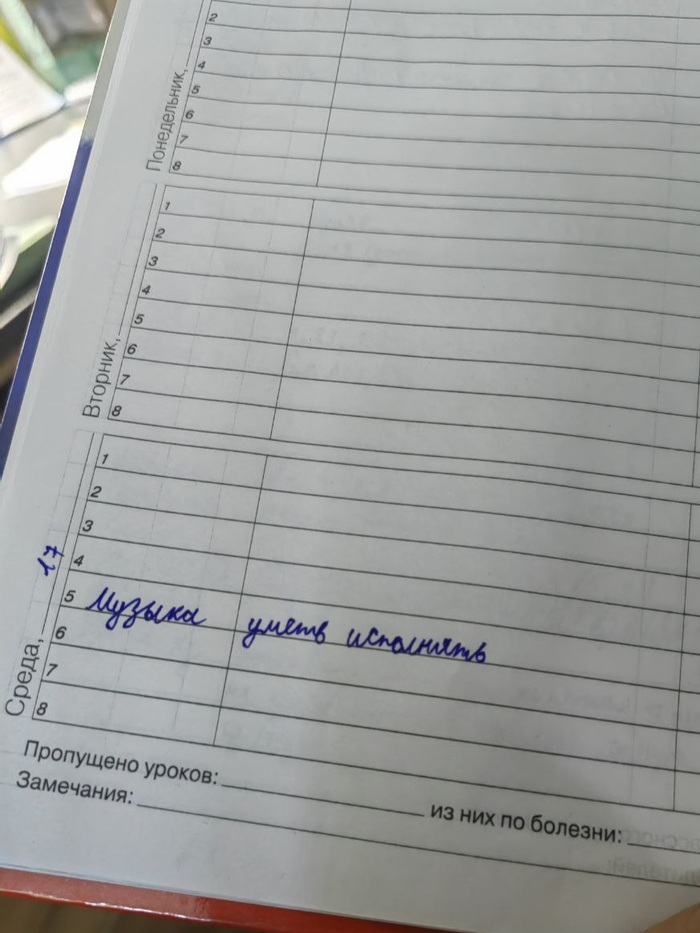 Понедельник,
2
3
4
5
6
7
8
Вторник,
1
2
3
4
5
6
7
8
Среда, 17
1
2
3
4
5 Музыка уметь исполнять
6
7
8
Пропущено уроков: из них по болезни:
Замечания: